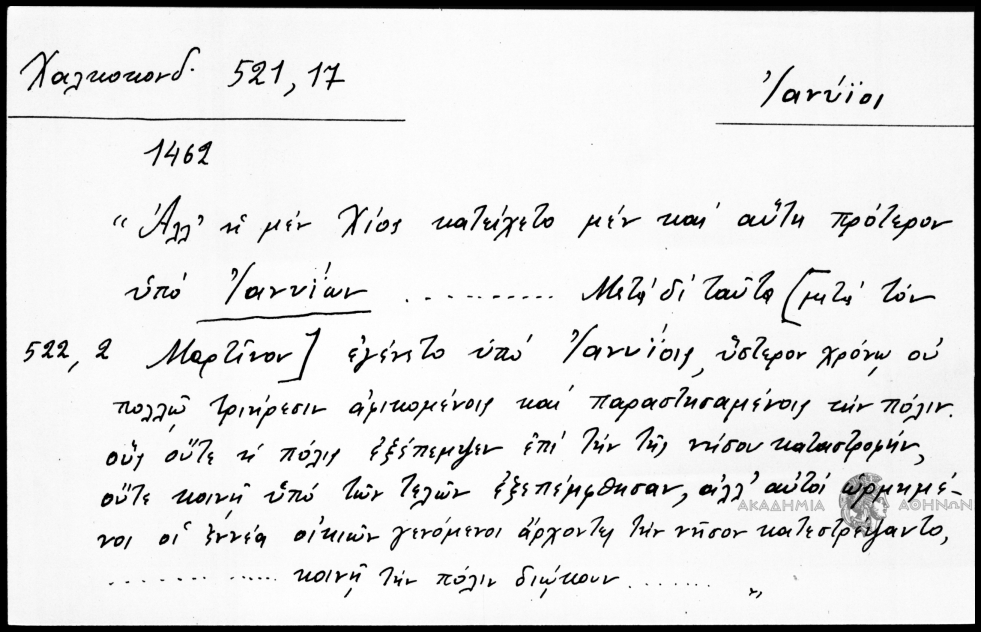 Χαλκοκονδ. 521, 17
Ἰανύϊοι
1462
"Ἀλλ' ἡ μέν Χίος κατείχετο μέν καί αὕτη πρότερον
ὑπό Ἰανυΐων .......... Μετά δέ ταῦτα [μετά τόν
522, 2 Μαρτῖνον] ἐγένετο ὑπό Ἰανυΐοις, ὕστερον χρόνῳ οὐ
πολλῷ τριήρεσιν ἀφικομένοις καί παραστησαμένοις τήν πόλιν.
οὕς οὔτε ἡ πόλις ἐξέπεμψεν ἐπί τήν τῆς νήσου καταστροφήν,
οὔτε κοινῇ ὑπό τῶν τελῶν ἐξεπέμφθησαν, ἀλλ' αὐτοί ὡρμημέ-
νοι οἱ ἐννέα οἰκιῶν γενόμενοι ἄρχοντες τήν νῆσον κατεστρέψαντο,
............ κοινῇ τήν πόλιν διῴκουν ....... "
ΑΚΑΔΗΜΙΑ ΑΘΗΝΩΝ